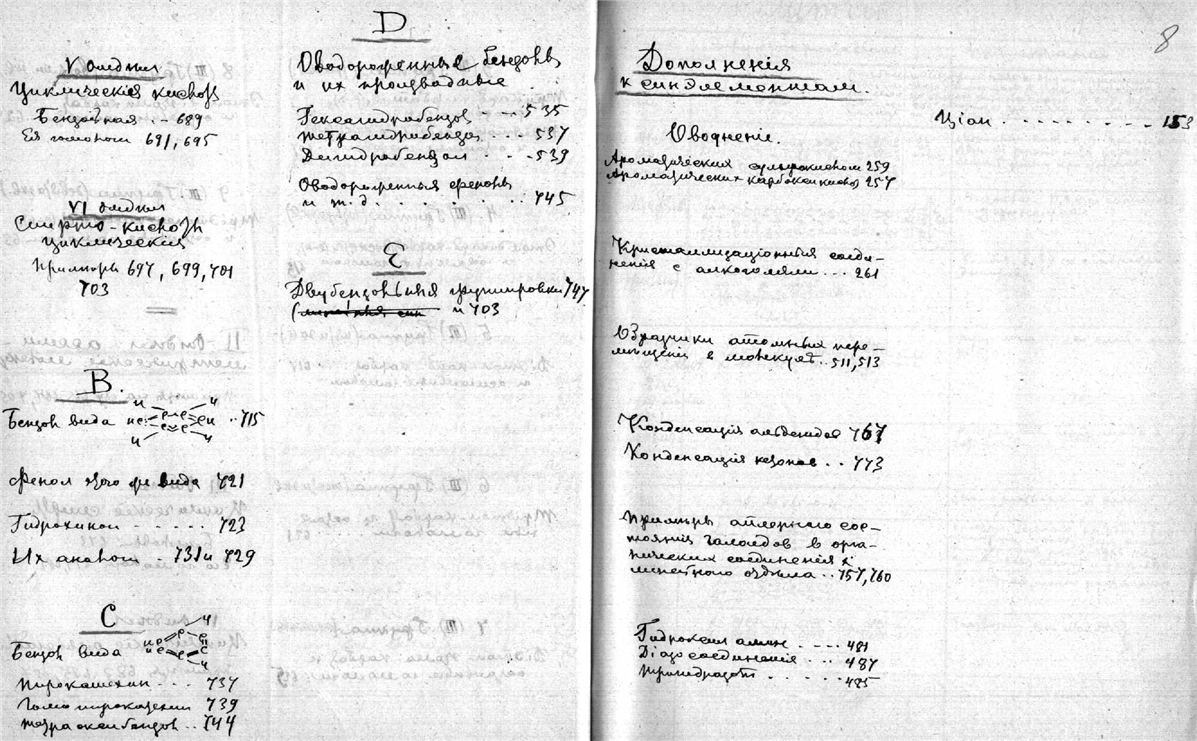 V отдѣлъ
Циклическія кислоты
Бензойная .. 689
Ея аналоги 691, 695
VI отдѣлъ
Спирто-кислоты
циклическія
Примѣры 697, 699, 701
703
B.
Бензолъ вида .. 715
Фенол этого же вида 721
Гидрохинон - ..... 723
Их аналоги . 731 и 729
C
Бензол вида
Пирокатехин ... 737
Гомопирокатехин 739
Тетраоксибензол .. 744
D
Оводороженные бензолы
и их производные
Гексагидробензол ... 535
Тетрагидробензол . 537
Дигидробензол . . . 539
Оводороженныя фенолы
и т. д. . . . . . 745
E
Двубензольныя группировки 747
и 703
8
Дополненія
к синдлементам.
Оводненіе.
Ароматических сульфокислот 259
Ароматических карбокислот 257
Кристаллизаціонныя соеди-
ненія с алкоголями ... 261
Образчики атомных пере-
мѣщеній в молекулѣ .. 511, 513
Конденсація альдегидов 767
Конденсація кетонов .. 773
Примѣры атомнаго сос-
тоянія галоидов в орга-
нических соединеніях
.. 757, 760
Гидроксиламин .... 481
Діазосоединенія .... 487
.... 485
Ціан . . . . . . . . . 153